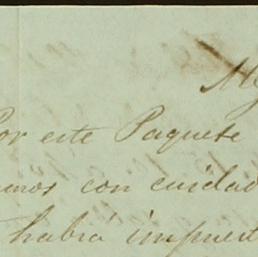 My
Por este Paquete
mos con cuidad
habrá impuest